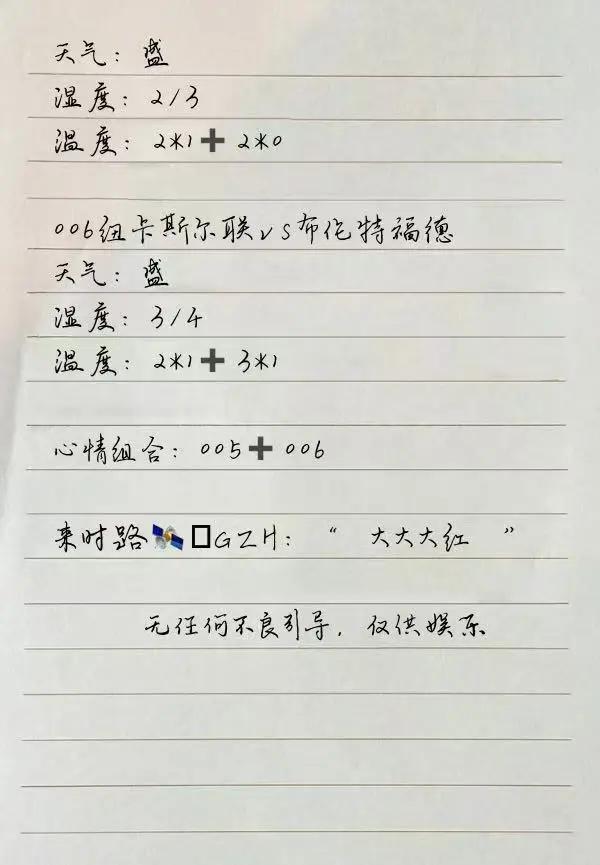 天气：盛
湿度：2/3
温度：2*1➕2*0
006纽卡斯尔联VS布伦特福德
天气：盛
湿度：3/4
温度：2*1➕3*1
心情组合：005➕006
来时路🛰️□GZH：“ 大大大红 ”
无任何不良引导，仅供娱乐